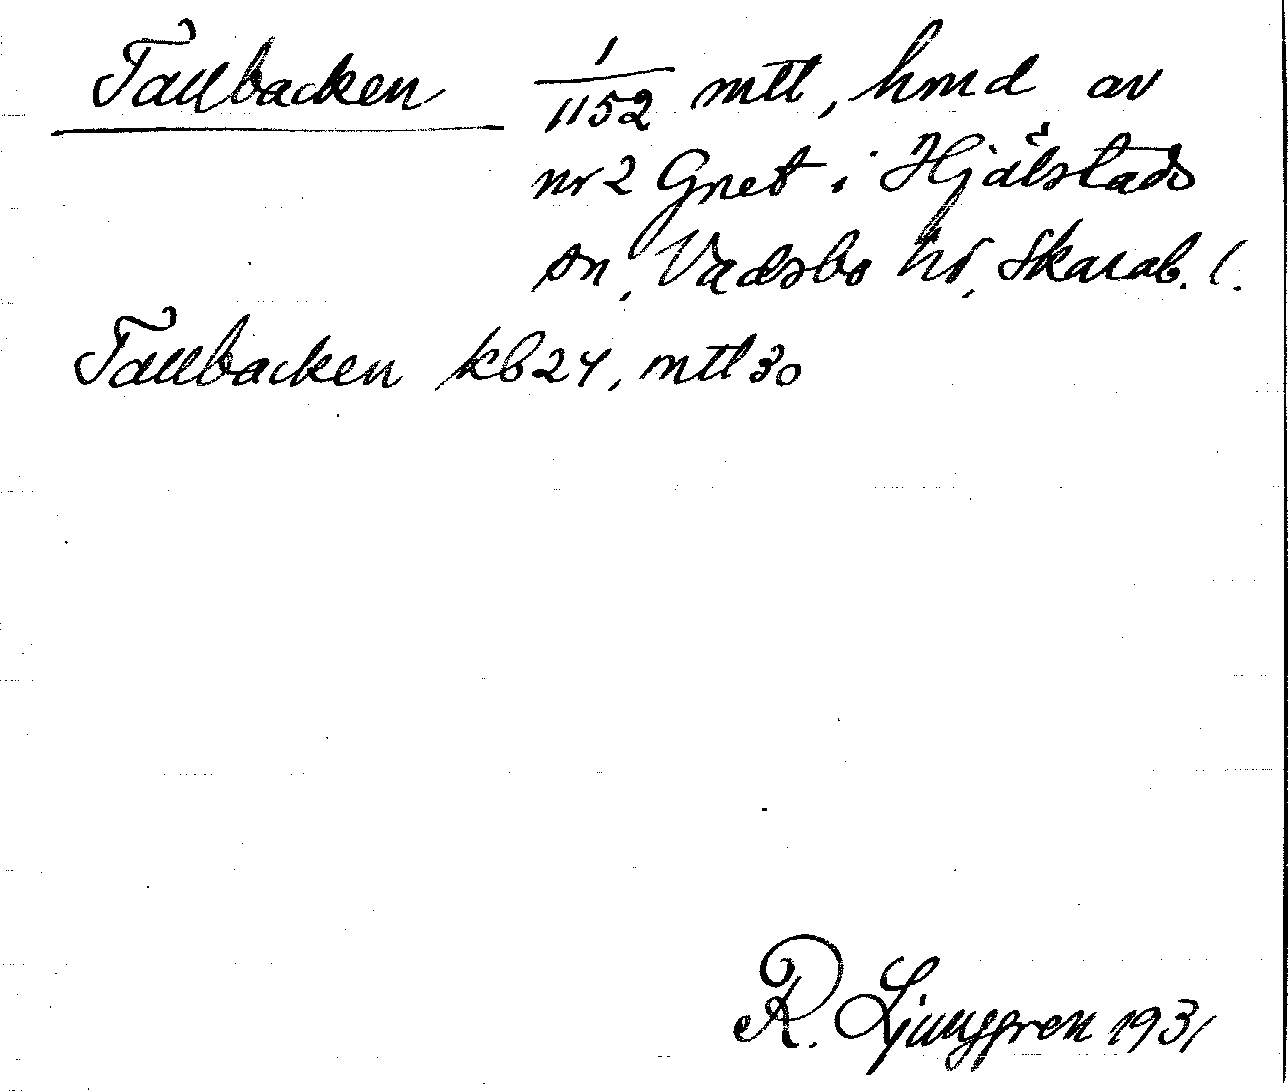 Tallbacken 1/1152 mtl, hmd av
nr 2 Gnet i Hjälstads
sn, Vadsbo hd, Skarab. l.
Tallbacken kb 24, mtl 30
R. Ljunggren 1931